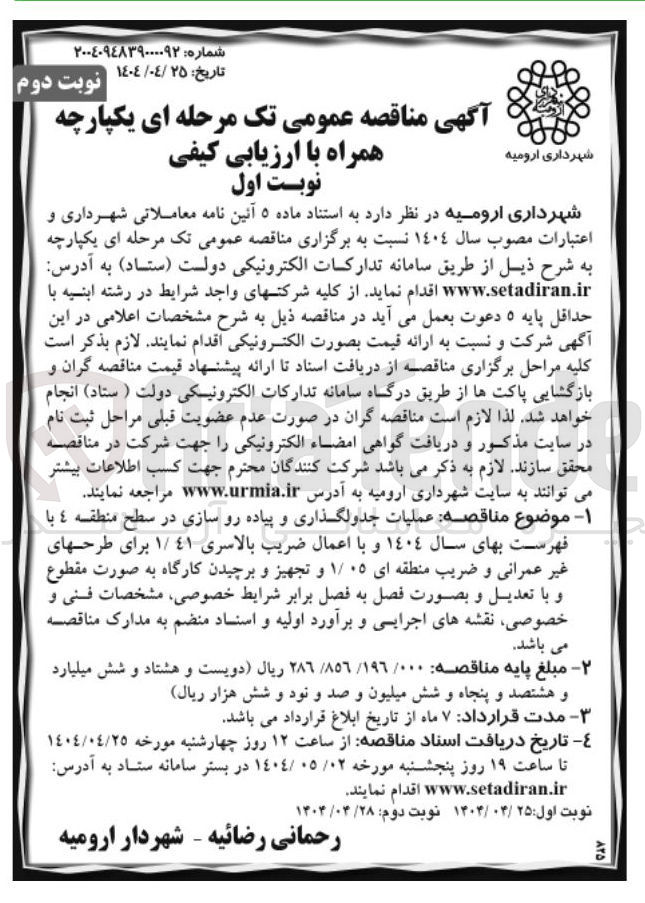 شماره: ۲۰۰۴۰۹۴۸۳۹۰۰۰۰۹۲
تاریخ: ۲۵ /۰۴/ ۱۴۰۴
نوبت دوم
شهرداری ارومیه
آگهی مناقصه عمومی تک مرحله ای یکپارچه
همراه با ارزیابی کیفی
نوبت اول
شهرداری ارومیه در نظر دارد به استناد ماده ۵ آئین نامه معاملاتی شهرداری و
اعتبارات مصوب سال ۱۴۰۴ نسبت به برگزاری مناقصه عمومی تک مرحله ای یکپارچه
به شرح ذیل از طریق سامانه تدارکات الکترونیکی دولت (ستاد) به آدرس:
www.setadiran.ir اقدام نماید. از کلیه شرکتهای واجد شرایط در رشته ابنیه با
حداقل پایه ۵ دعوت بعمل می آید در مناقصه ذیل به شرح مشخصات اعلامی در این
آگهی شرکت و نسبت به ارائه قیمت بصورت الکترونیکی اقدام نمایند. لازم بذکر است
کلیه مراحل برگزاری مناقصه از دریافت اسناد تا ارائه پیشنهاد قیمت مناقصه گران و
بازگشایی پاکت ها از طریق درگاه سامانه تدارکات الکترونیکی دولت ( ستاد) انجام
خواهد شد. لذا لازم است مناقصه گران در صورت عدم عضویت قبلی مراحل ثبت نام
در سایت مذکور و دریافت گواهی امضاء الکترونیکی را جهت شرکت در مناقصه
محقق سازند. لازم به ذکر می باشد شرکت کنندگان محترم جهت کسب اطلاعات بیشتر
می توانند به سایت شهرداری ارومیه به آدرس www.urmia.ir مراجعه نمایند.
۱- موضوع مناقصه: عملیات جدولگذاری و پیاده رو سازی در سطح منطقه ۴ با
فهرست بهای سال ۱۴۰۴ و با اعمال ضریب بالاسری ۴۱ /۱ برای طرحهای
غیر عمرانی و ضریب منطقه ای ۰۵ /۱ و تجهیز و برچیدن کارگاه به صورت مقطوع
و با تعدیل و بصورت فصل به فصل برابر شرایط خصوصی، مشخصات فنی و
خصوصی، نقشه های اجرایی و برآورد اولیه و اسناد منضم به مدارک مناقصه
می باشد.
۲- مبلغ پایه مناقصه: ۰۰۰/ ۱۹۶/ ۸۵۶/ ۲۸۶ ریال (دویست و هشتاد و شش میلیارد
و هشتصد و پنجاه و شش میلیون و صد و نود و شش هزار ریال)
۳- مدت قرارداد: ۷ ماه از تاریخ ابلاغ قرارداد می باشد.
۴- تاریخ دریافت اسناد مناقصه: از ساعت ۱۲ روز چهارشنبه مورخه ۱۴۰۴/۰۴/۲۵
تا ساعت ۱۹ روز پنجشنبه مورخه ۰۲/ ۰۵ /۱۴۰۴ در بستر سامانه ستاد به آدرس:
www.setadiran.ir اقدام نمایند.
نوبت اول:۲۵ /۰۴ /۱۴۰۴ نوبت دوم: ۲۸/ ۰۴ /۱۴۰۴
رحمانی رضائیه - شهردار ارومیه
۸۲۵